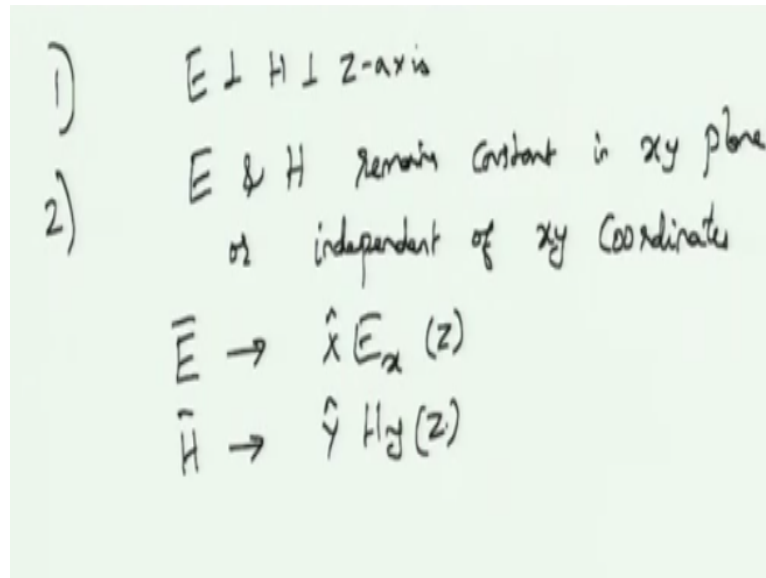 1) E ⊥ H ⊥ z-axis
2) E & H remain constant in xy plane
or independent of xy coordinates
Ē → x̂ Eₓ (z)
H̄ → ŷ Hy (z)